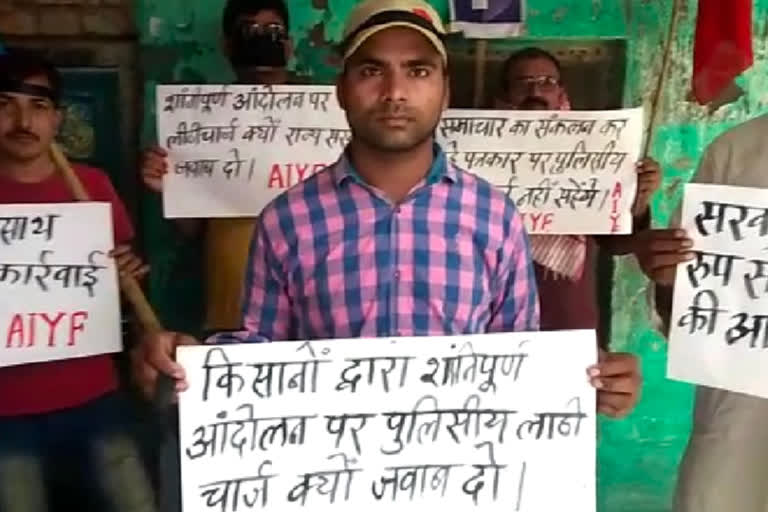 शांतिपूर्ण आंदोलन पर
लाठीचार्ज क्यों राज्य
जवाब दो।
समाचार का संकलन कर
पत्रकार पर पुलिसीय
नहीं सहेंगे।
AIYF
साथ
कार्रवाई
AIYF
की
किसानों द्वारा शांतिपूर्ण
आंदोलन पर पुलिसीय लाठी
चार्ज क्यों जवाब दो।